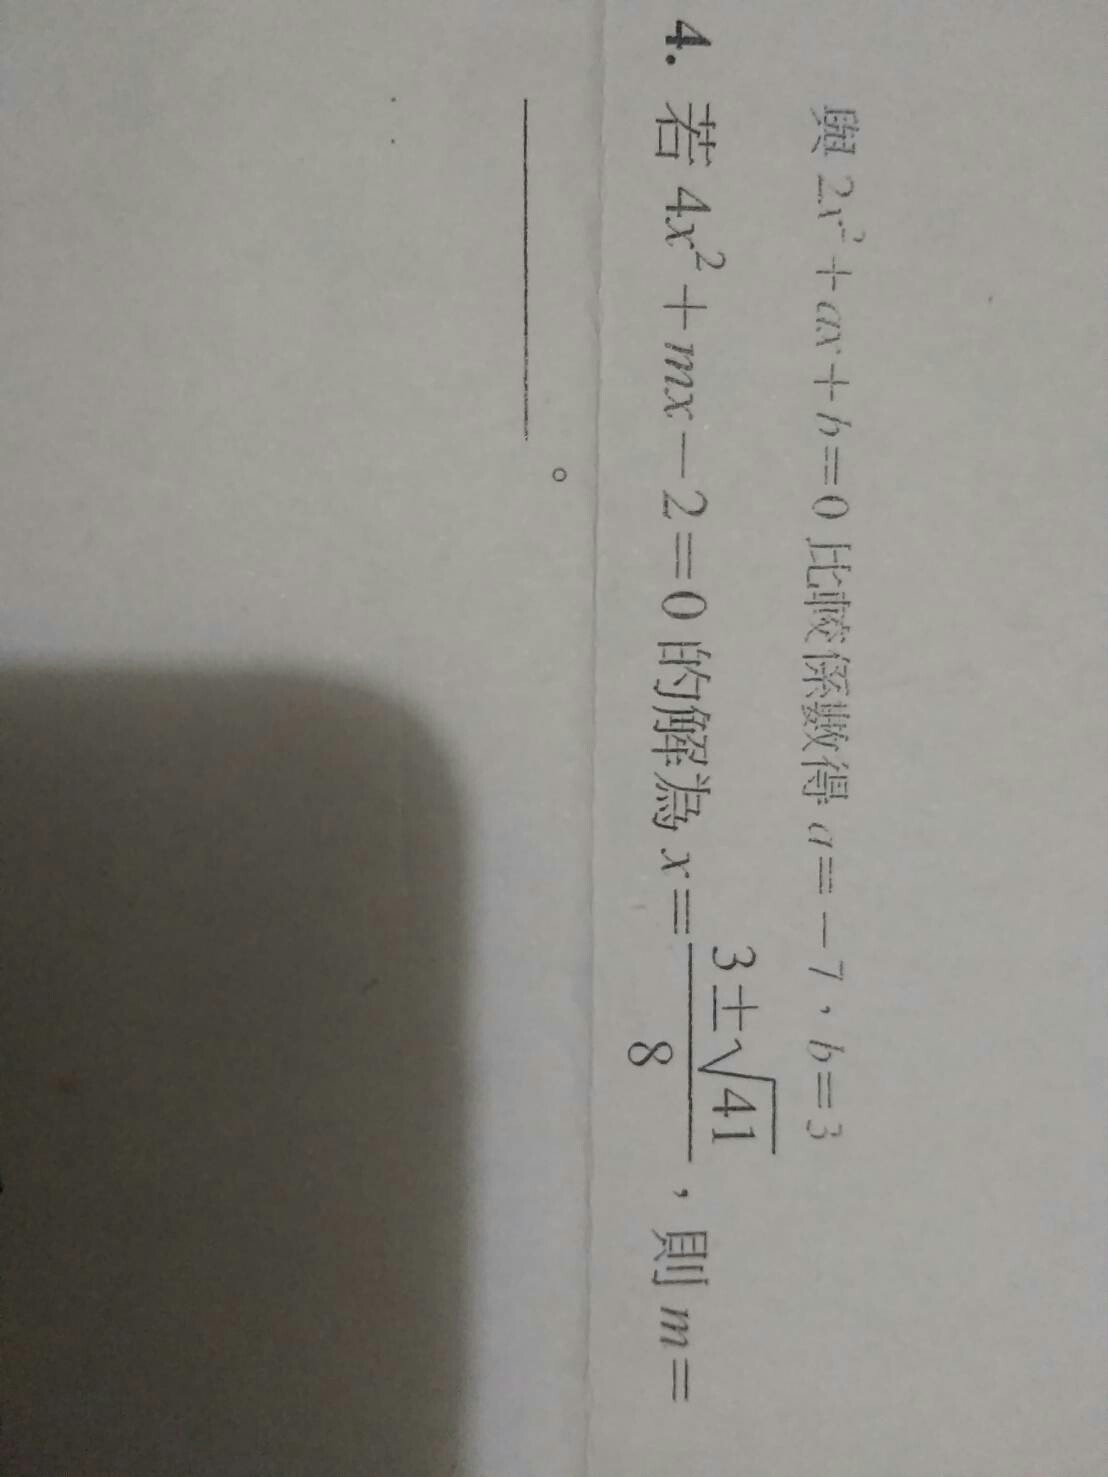 與 2x²+ax+b=0 比較係數得 a=-7，b=3
4. 若 4x²+mx-2=0 的解為 x=\frac{3±\sqrt{41}}{8}，則 m=
________。